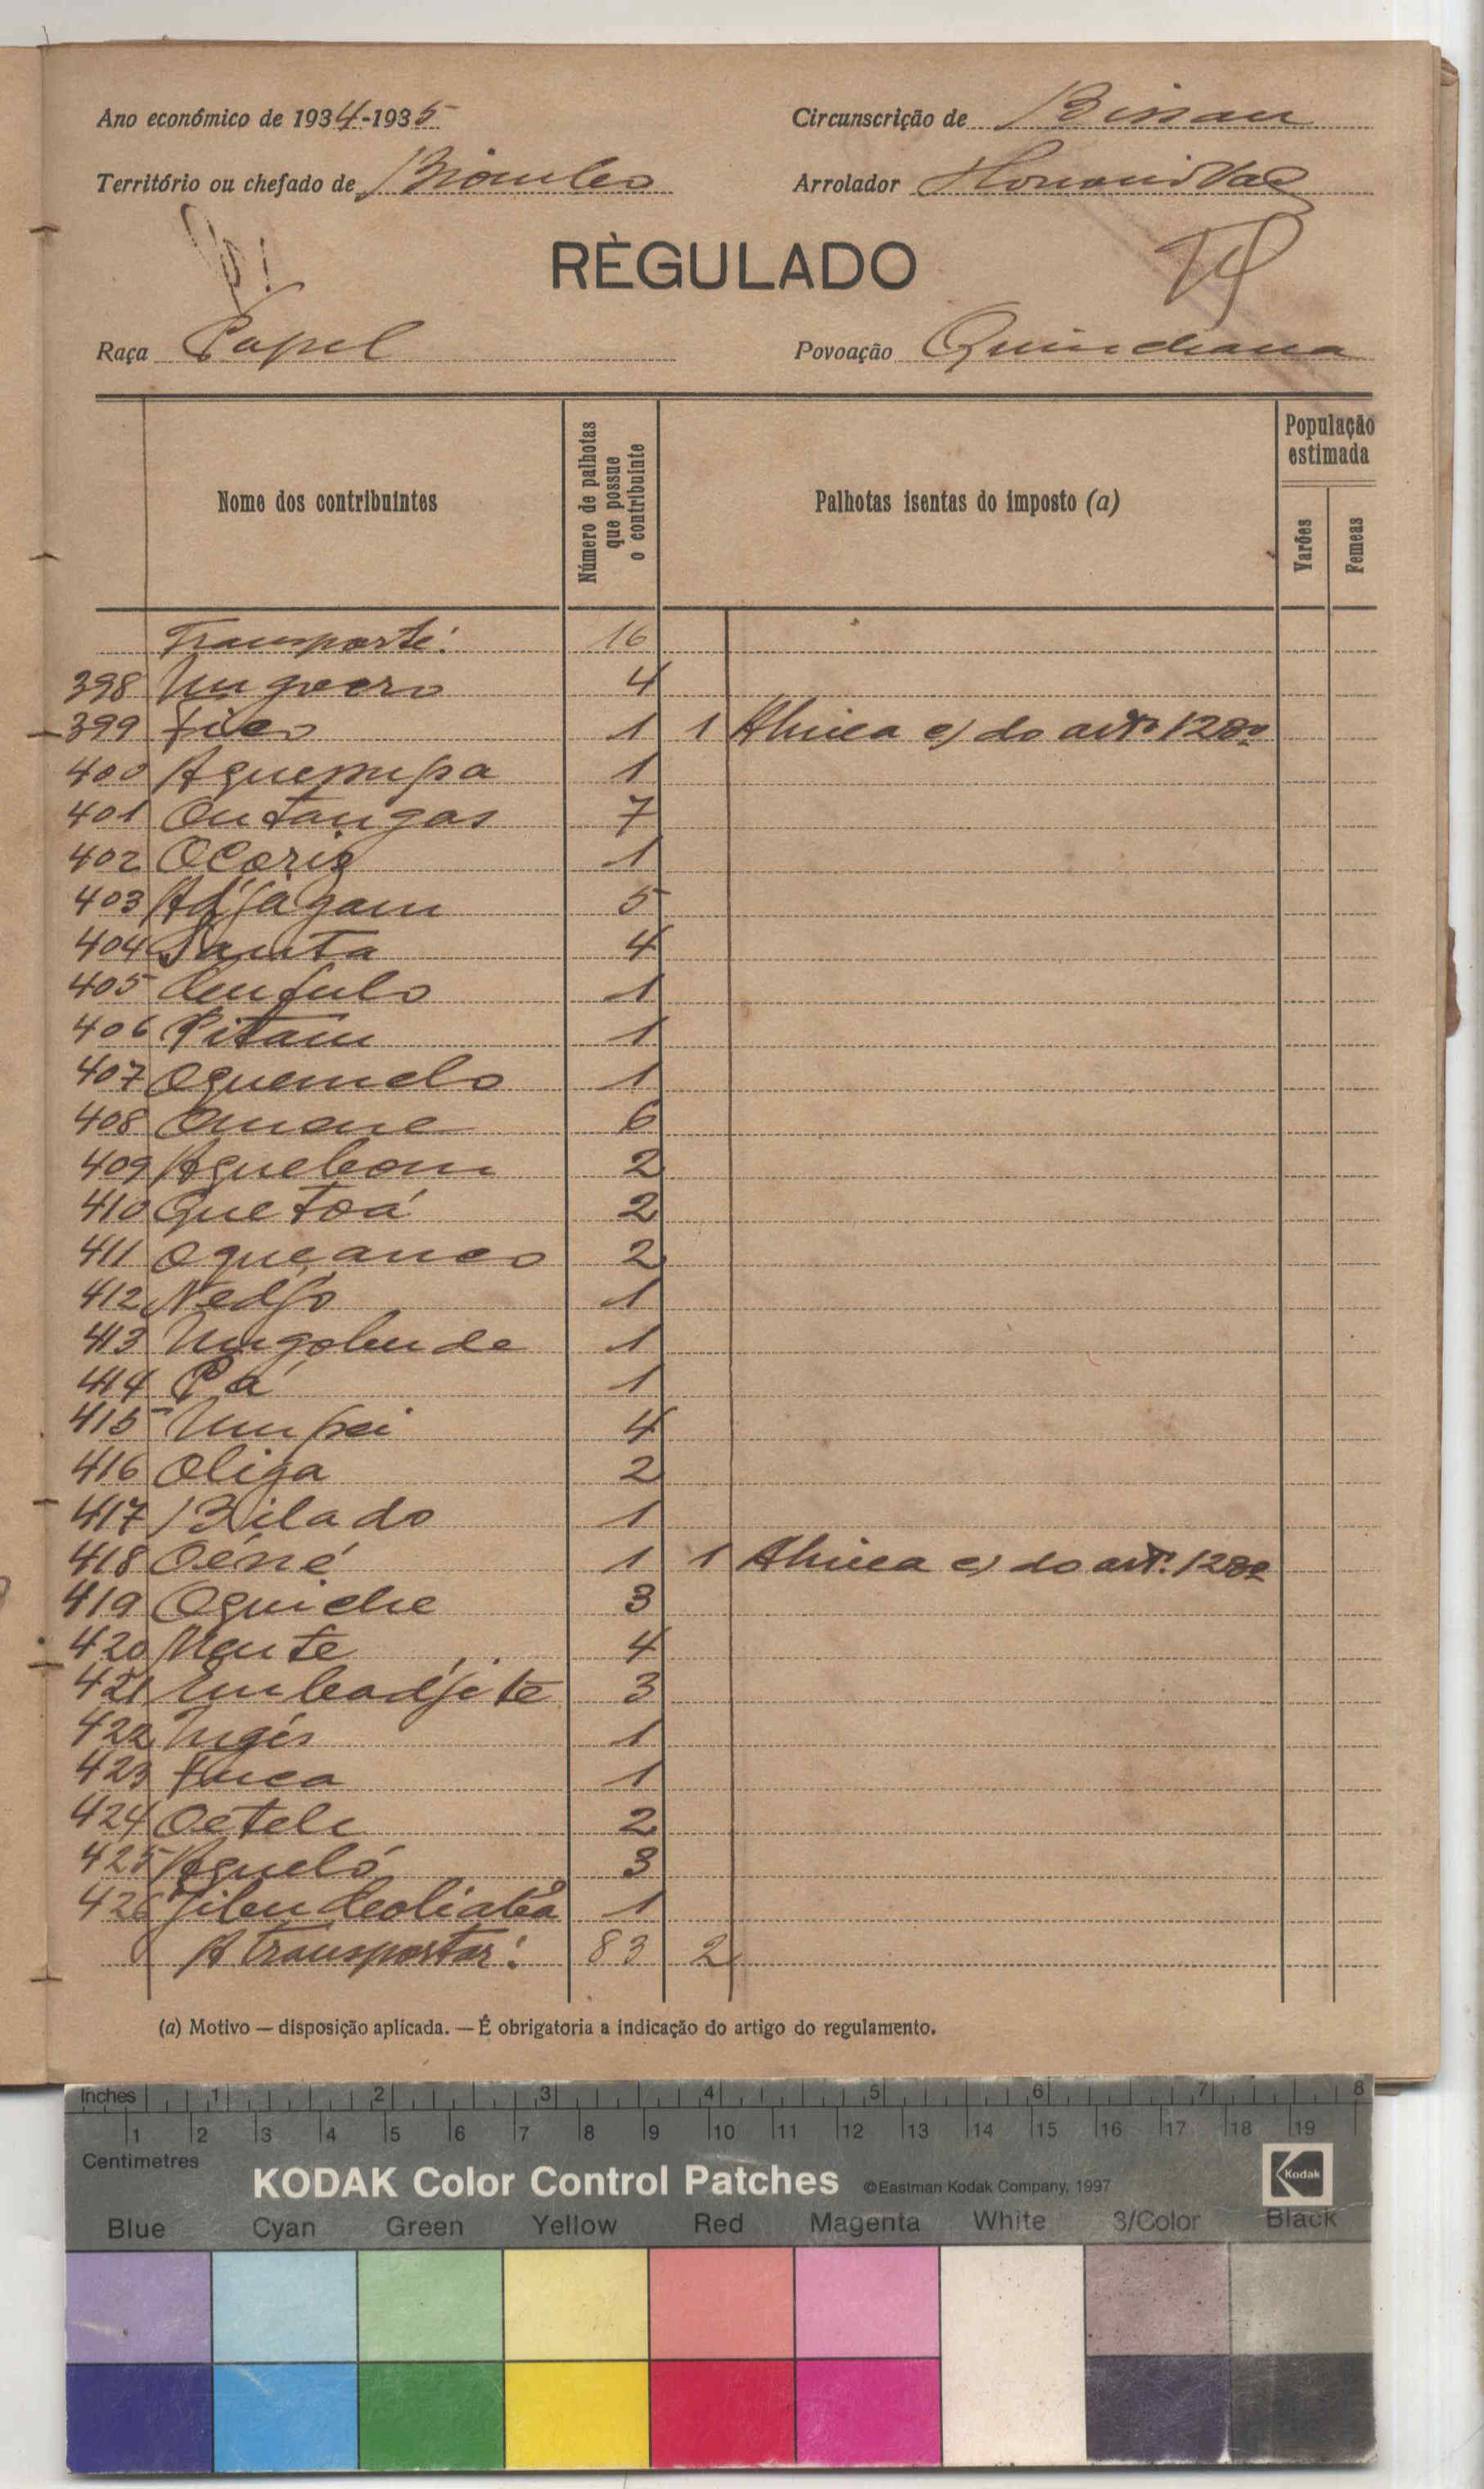 Ano económico de 1934-1935 Circunscrição de Bissau
Território ou chefado de Biombo Arrolador
RÈGULADO
Raça Papel Povoação Quinchana
Nome dos contribuintes
Número de palhotas que possue o contribuinte
Palhotas isentas do imposto (a)
População estimada
Varões
Femeas
Transporte: 16
398 4
399 Fico 1 1 Alinea c) do artº 128º
400 Aquempa 1
401 Ontangas 7
402 1
403 Adjagam 5
404 Santa 4
405 1
406 Pitam 1
407 Oquemelo 1
408 Omone 6
409 Aquebom 2
410 Quetoá 2
411 2
412 Nedjo 1
413 1
414 Pá 1
415 Umpei 4
416 Oliga 2
417 Bilado 1
418 Oéné 1 1 Alinea c) do artº. 128º
419 Oquiche 3
420 4
421 3
422 1
423 1
424 Oetele 2
425 Aqueló 3
426 1
A transportar: 83 2
(a) Motivo — disposição aplicada. — É obrigatoria a indicação do artigo do regulamento.
Inches 1 2 3 4 5 6 7 8
1 2 3 4 5 6 7 8 9 10 11 12 13 14 15 16 17 18 19
Centimetres
KODAK Color Control Patches ©Eastman Kodak Company, 1997 Kodak
Blue Cyan Green Yellow Red Magenta White 3/Color Black